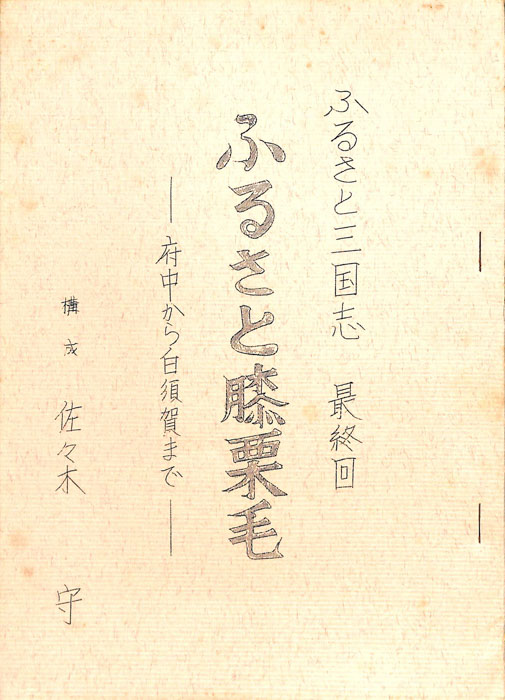 ふるさと三国志　最終回
ふるさと膝栗毛
――府中から白須賀まで――
構成　佐々木　守